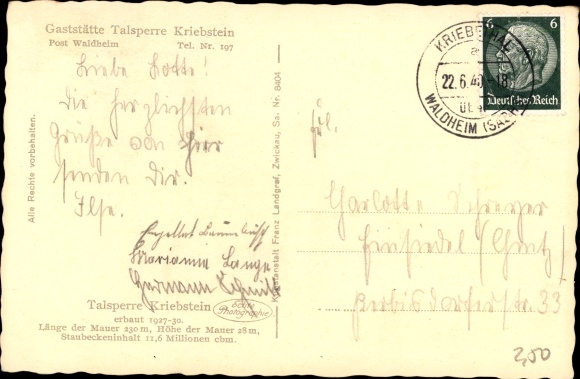 Gaststätte Talsperre Kriebstein
Post Waldheim Tel. Nr. 197
Liebe Lotte!
Die herzlichsten
Grüße von hier
senden Dir.
Ilse.
Marianne Lange
Hermann
Talsperre Kriebstein
erbaut 1927-30.
Länge der Mauer 230 m, Höhe der Mauer 28 m,
Staubeckeninhalt 11,6 Millionen cbm.
Alle Rechte vorbehalten.
Kunstanstalt Franz Landgraf, Zwickau, Sa. Nr. 8404
Photographie
KRIEBETHAL
22.6.40
ÜBER
WALDHEIM (SACHS)
6 6
Deutsches Reich
Frl.
Charlotte
Einsiedel / Chmtz /
Berbisdorferstr. 33
2,50